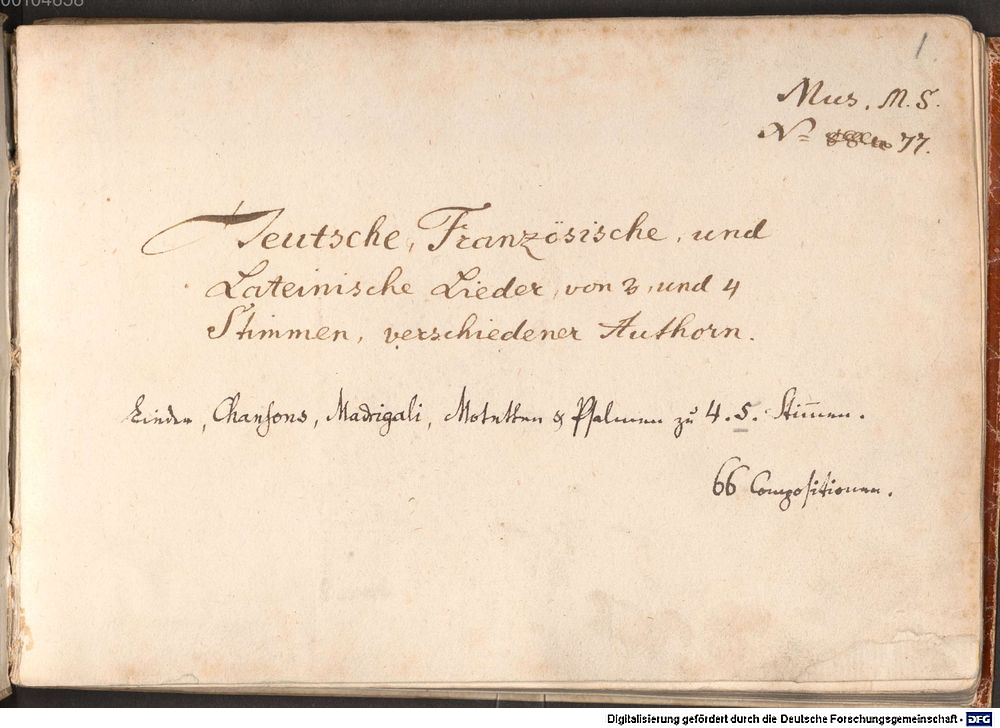 00104638
1
Mus. M.S.
No 77.
Teutsche, Französische, und
Lateinische Lieder, von 3, und 4
Stimmen, verschiedener Authorn.
Lieder, Chansons, Madrigali, Motetten & Psalmen zu 4. 5. Stimmen.
66 Compositionen.
Digitalisierung gefördert durch die Deutsche Forschungsgemeinschaft - DFG